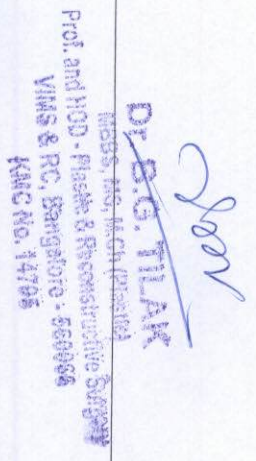 Dr. B.G. TILAK
MBBS, MS, M.Ch, (Plastic)
Prof. and HOD - Plastic & Reconstructive Surgery
VIMS & RC, Bangalore - 560066
KMC No.